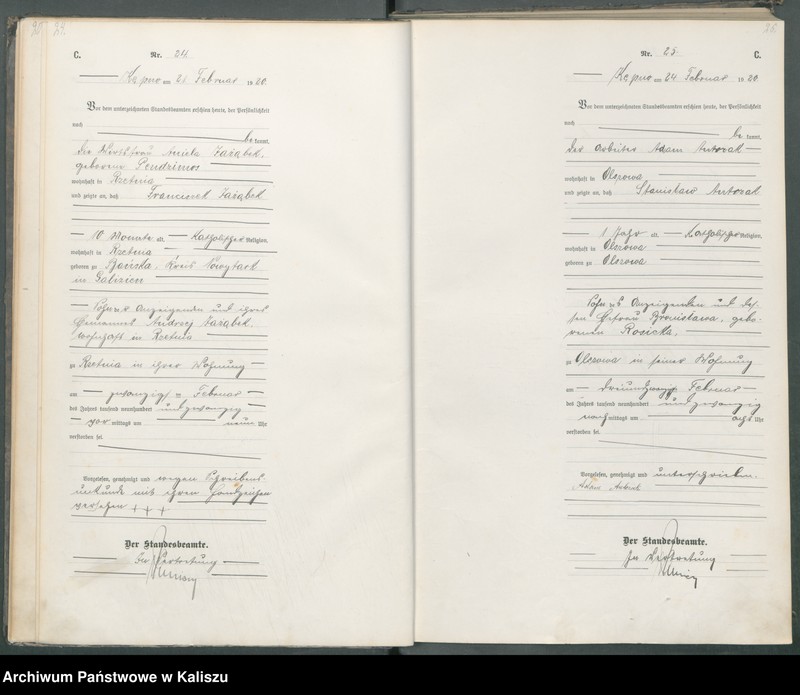 C. Nr. 24
Kempno am 21 Februar 1920.
Vor dem unterzeichneten Standesbeamten erschien heute, der Persönlichkeit
nach
be kannt,
die Wirtsfrau Aniela Zarąbek,
geborene Pendzimos
wohnhaft in Rzetnia
und zeigte an, daß Franciszek Zarąbek
10 Monate alt, katholischer Religion,
wohnhaft in Rzetnia
geboren zu Kreis Nowytark
in Galizien
Sohn der Anzeigenden und ihres
Ehemannes Andrzej Zarąbek,
wohnhaft in Rzetnia
zu Rzetnia in ihrer Wohnung
am zwanzigsten Februar
des Jahres tausend neunhundert und zwanzig
vor mittags um neun Uhr
verstorben sei.
Vorgelesen, genehmigt und wegen Schreibens
unkunde mit ihren Handzeichen
versehen + + +
Der Standesbeamte.
In Vertretung
Nr. 25 C.
Kempno am 24 Februar 1920.
Vor dem unterzeichneten Standesbeamten erschien heute, der Persönlichkeit
nach
be kannt,
der Arbeiter Adam Antczak
wohnhaft in Olszowa
und zeigte an, daß Stanisław Antczak
1 Jahr alt, katholischer Religion,
wohnhaft in Olszowa
geboren zu Olszowa
Sohn des Anzeigenden und des-
sen Ehefrau Bronisława, gebo-
renen Rosicka,
zu Olszowa in seiner Wohnung
am dreiundzwanzigsten Februar
des Jahres tausend neunhundert und zwanzig
nach mittags um acht Uhr
verstorben sei.
Vorgelesen, genehmigt und unterschrieben.
Adam
Der Standesbeamte.
In Vertretung
Archiwum Państwowe w Kaliszu